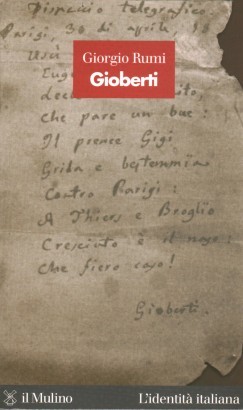 Dispaccio telegrafico.
Parigi, 30 di aprile, 18
Uscì
Giorgio Rumi
Gioberti
Euge
dec ito,
che pare un bue:
Il prence Gigi
Grida e bestemmia
Contro Parigi:
A Thiers e Broglio
Cresciuto è il naso:
Che fiero caso!
Gioberti.
il Mulino
L'identità italiana